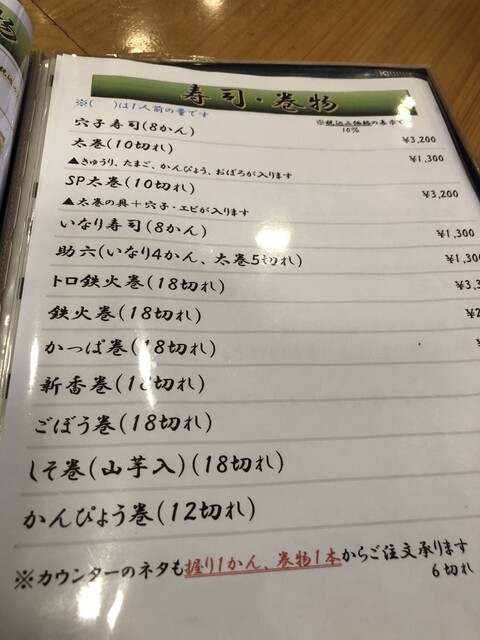 寿司・巻物
※(　)は1人前の量です
※税込み価格の表示で
10%
穴子寿司(8かん) ¥3,200
太巻(10切れ) ¥1,300
▲きゅうり、たまご、かんぴょう、おぼろが入ります
SP太巻(10切れ) ¥3,200
▲太巻の具+穴子・エビが入ります
いなり寿司(8かん) ¥1,300
助六(いなり4かん、太巻5切れ) ¥1,30
トロ鉄火巻(18切れ) ¥3,
鉄火巻(18切れ) ¥2
かっぱ巻(18切れ)
新香巻(18切れ)
ごぼう巻(18切れ)
しそ巻(山芋入)(18切れ)
かんぴょう巻(12切れ)
※カウンターのネタも握り1かん、巻物1本からご注文承ります
6切れ